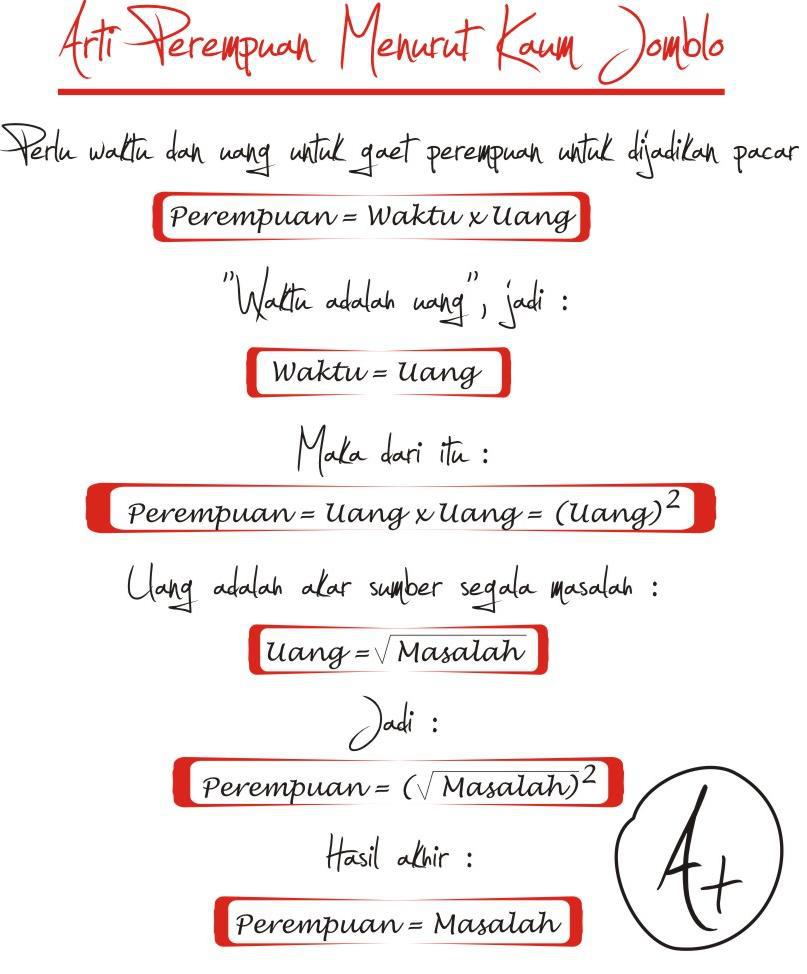 Arti Perempuan Menurut Kaum Jomblo
Perlu waktu dan uang untuk gaet perempuan untuk dijadikan pacar
Perempuan = Waktu x Uang
"Waktu adalah uang", jadi :
Waktu = Uang
Maka dari itu :
Perempuan = Uang x Uang = (Uang)²
Uang adalah akar sumber segala masalah :
Uang = √Masalah
Jadi :
Perempuan = (√Masalah)²
Hasil akhir :
Perempuan = Masalah
A+